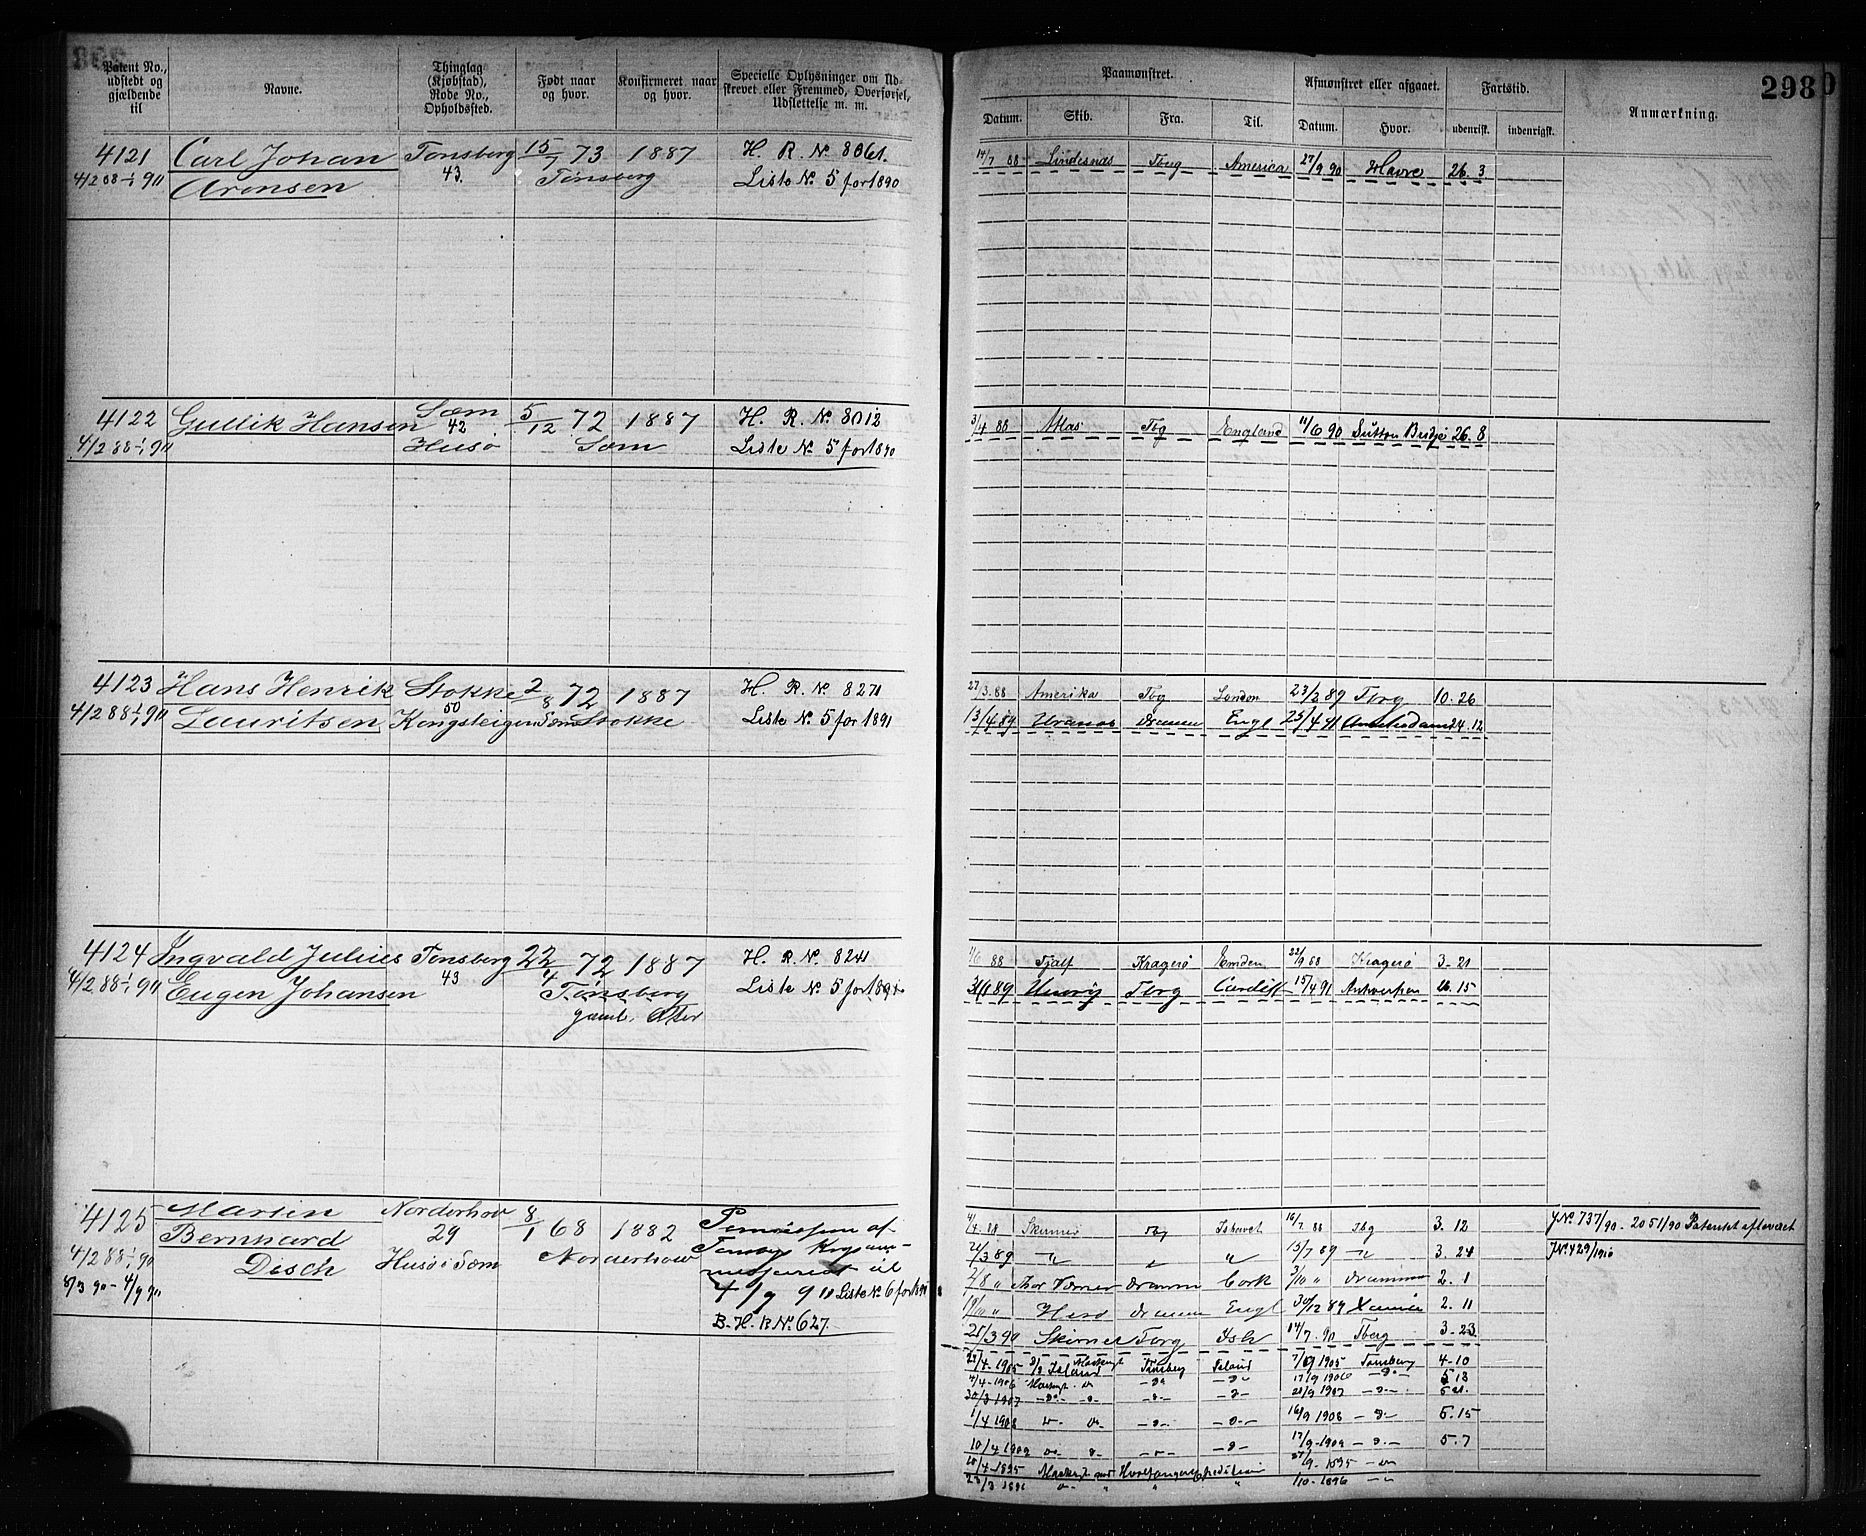 298
Patent No., udstedt og gjældende til
Navne.
Thinglag (Kjøbstad), Rode No., Opholdssted.
Født naar og hvor.
Konfirmeret naar og hvor.
Specielle Oplysninger om Udskrevet eller Fremmed, Overførsel, Udslettelse m. m.
Paamønstret.
Afmønstret eller afgaaet.
Fartstid.
Anmærkning.
Datum. Skib. Fra. Til. Datum. Hvor. udenrisk. indenrigsk.
4121 Carl Johan Tønsberg 15/7 73 1887 H. R. No 8061.
4/2 88-1/1 91 Aronsen 43. Tønsberg Liste No 5 for 1890
14/7 88 Lindesnæs Tbg America 27/9 90 Havre 26. 3
4122 Gullik Hansen Sæm 5/12 72 1887 H. R. No 8012
4/2 88-1/1 91 42 Husø Sæm Liste No 5 for 1890
3/4 88 Atlas Tbg England 11/6 90 Sutton Bridge 26. 8
4123 Hans Henrik Stokke 2/8 72 1887 H. R. No 8271
4/2 88-1/1 91 Lauritsen 50 Kongsteigen Sæm Stokke Liste No 5 for 1891
27/3 88 Amerika Tbg London 23/2 89 Tbrg 10. 26
13/4 89 Uranos Drammen Engl 25/4 91 Amsterdam 24. 12
4124 Ingvald Julius Tønsberg 22/4 72 1887 H. R. No 8241
4/2 88-1/1 91 Eugen Johansen 43 Tønsberg Liste No 5 for 1891
gaml. Atter
11/6 88 Tjalf Kragerø Emden 22/9 88 Kragerø 3-21
89 Tbrg Cardiff 15/4 91 Antwerpen 15
4125 Martin Norderhov 8/1 68 1882
Bernhard 29 Norderhov
4/2 88-1/1 90 Disch Husø i Sæm
8/3 90 - 4/9 91
4/9 91 Liste No 6 for 1891
B. H. R No. 627.
4/4 88 Skirner Tbg Ishavet 16/7 88 Tbg 3. 12 J No. 737/90 - 2051/90 Patentet afleveret
21/3 89 -"- " " 15/7 89 -"- 3. 24 J.No. 429/1910
2/8 " Thor Værner Drammen Cork 3/10 " Drammen 2. 1
19/10 " Herd Drammen Engl 30/12 89 2. 11
25/3 90 Skirner Tbrg Ish 14/7. 90 Tberg 3-23
22/4-1905 S/S Island Tønsberg Island 7/9 1905 Tønsberg 4-10
4/4-1906 -"- -"- 17/9 1906 -"- 5 13
30/3 1907 -"- -"- 21/9 1907 -"- 5 21.
1/4 1908 -"- -"- 16/9 1908 -"- 5. 15
10/4 1909 -"- -"- 17/9-1909 -"- 5. 7
18/4-1895 27/9-1895 -"-
23/3 1896 " " /10-1896 -"-